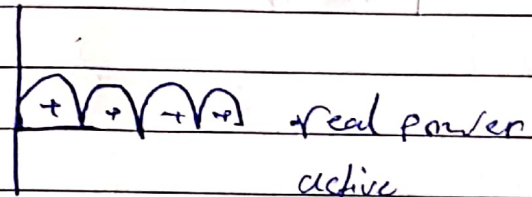 + + + + real power
active